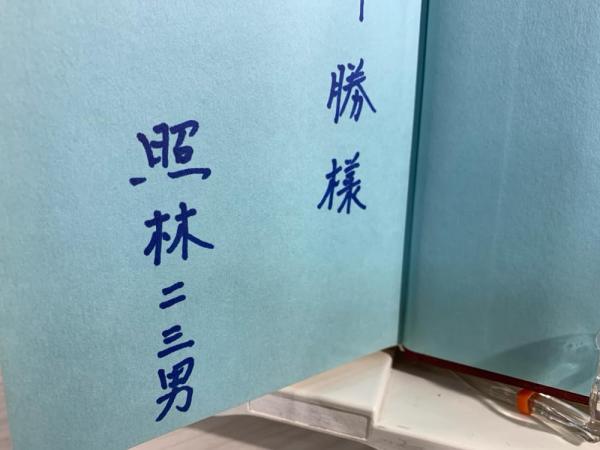 勝様
照林二三男